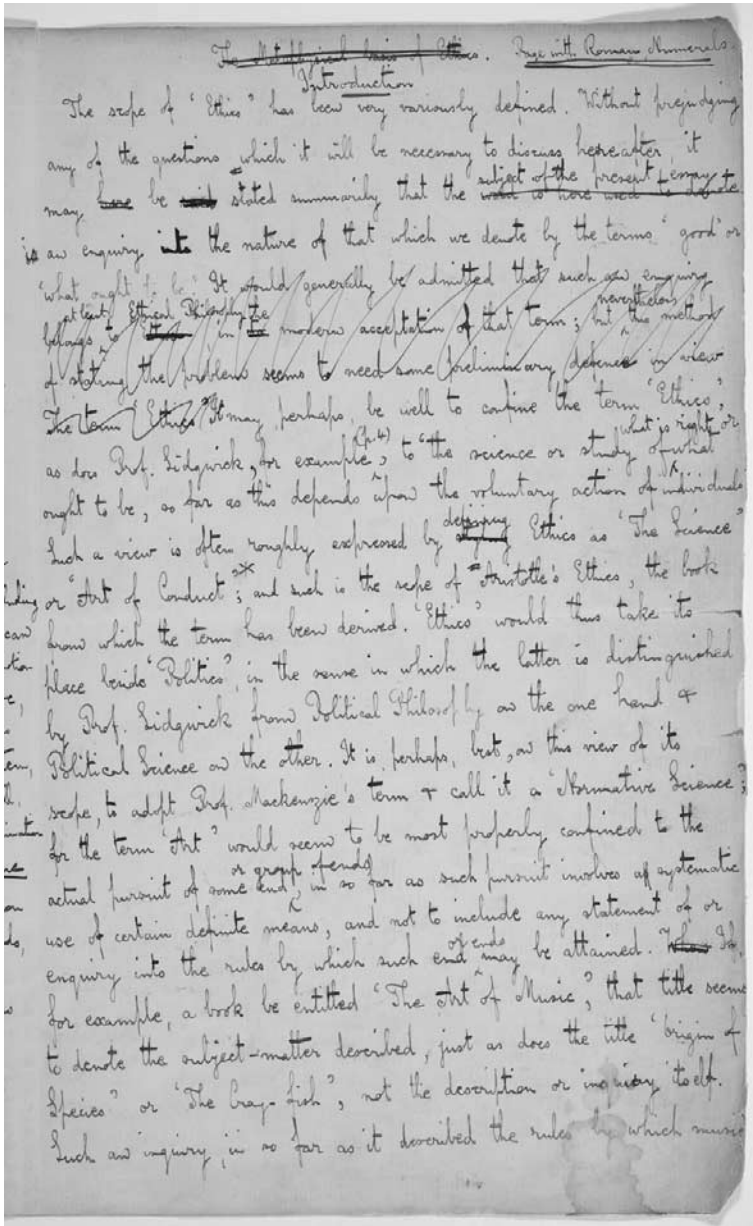 The Metaphysical basis of Ethics. Page with Roman Numerals.
Introduction
The scope of "Ethics" has been very variously defined. Without prejudging
any of the questions which it will be necessary to discuss hereafter, it
may here be said stated summarily that the subject of the present essay
is an enquiry into the nature of that which we denote by the terms "good" or
"what ought to be". It would generally be admitted that such an enquiry
belongs at least to Ethical Philosophy in the modern acceptation of that term; but nevertheless this method
of stating the problem seems to need some preliminary defence in view
The term "Ethics" It may perhaps, be well to confine the term "Ethics",
as does Prof. Sidgwick, for example (p.4), to "the science or study of what is right or what
ought to be, so far as this depends upon the voluntary action of individuals
Such a view is often roughly expressed by defining Ethics as "The Science"
or "Art of Conduct"; and such is the scope of Aristotle's Ethics, the book
from which the term has been derived. "Ethics" would thus take its
place beside "Politics", in the sense in which the latter is distinguished
by Prof. Sidgwick from Political Philosophy on the one hand &
Political Science on the other. It is, perhaps, best, on this view of its
scope, to adopt Prof. Mackenzie's term & call it a "Normative Science";
for the term "Art" would seem to be most properly confined to the
actual pursuit of some end or group of ends, in so far as such pursuit involves a systematic
use of certain definite means, and not to include any statement of or
enquiry into the rules by which such end of ends may be attained. If,
for example, a book be entitled "The Art of Music", that title seems
to denote the subject-matter described, just as does the title "Origin of
Species" or "The Cray-fish", not the description or inquiry itself.
Such an inquiry, in so far as it described the rules by which music